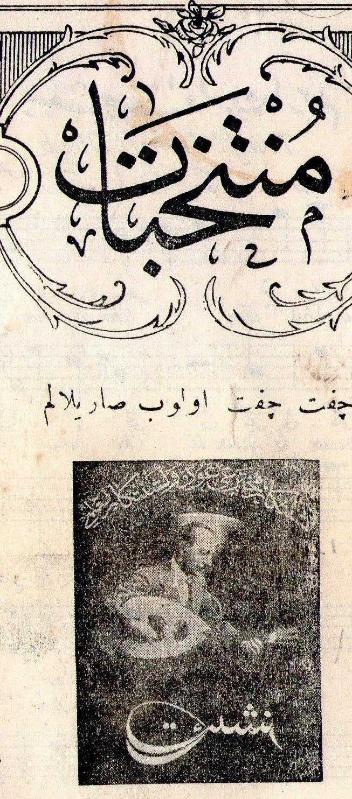 مُنتخبات
چفت چفت اولوب صاریلالم
نشئت